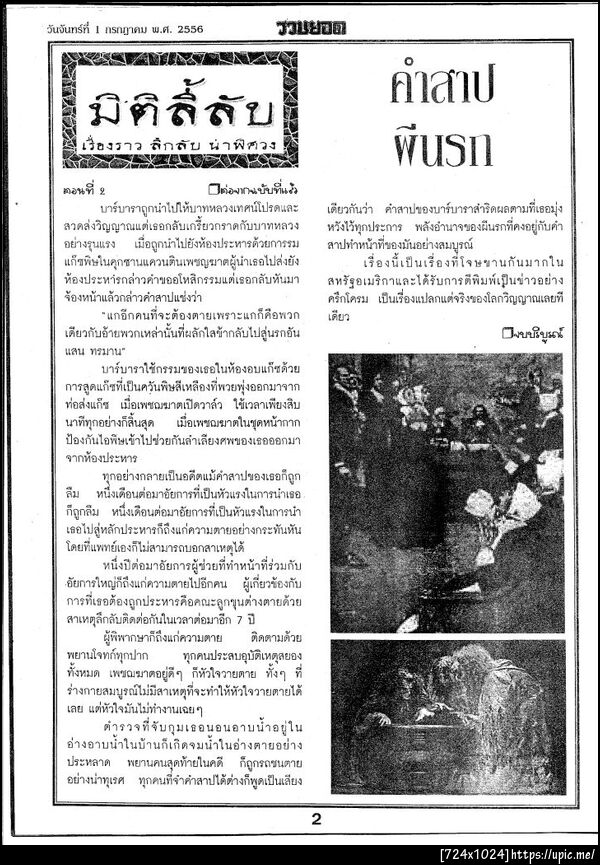 วันจันทร์ที่ 1 กรกฎาคม พ.ศ. 2556
รวมยอด
มิติลี้ลับ
เรื่องราว ลึกลับ น่าพิศวง
คำสาป
ผีนรก
ตอนที่ 2
ต่อจากฉบับที่แล้ว
บาร์บาราถูกนำไปให้บาทหลวงเทศน์โปรดและ
สวดส่งวิญญาณแต่เธอกลับเกรี้ยวกราดกับบาทหลวง
อย่างรุนแรง เมื่อถูกนำไปยังห้องประหารด้วยการรม
แก๊ซพิษในคุกซานแควนตินเพชฌฆาตผู้นำเธอไปส่งยัง
ห้องประหารกล่าวคำขอโหสิกรรมแต่เธอกลับหันมา
จ้องหน้าแล้วกล่าวคำสาปแช่งว่า
"แกอีกคนที่จะต้องตายเพราะแกก็คือพวก
เดียวกับอ้ายพวกเหล่านั้นที่ผลักใสข้ากลับไปสู่นรกอัน
แสน ทรมาน"
บาร์บาราใช้กรรมของเธอในห้องอบแก๊ซด้วย
การสูดแก๊ซที่เป็นควันพิษสีเหลืองที่พวยพุ่งออกมาจาก
ท่อส่งแก๊ซ เมื่อเพชฌฆาตเปิดวาล์ว ใช้เวลาเพียงสิบ
นาทีทุกอย่างก็สิ้นสุด เมื่อเพชฌฆาตในชุดหน้ากาก
ป้องกันไอพิษเข้าไปช่วยกันลำเลียงศพของเธอออกมา
จากห้องประหาร
ทุกอย่างกลายเป็นอดีตแม้คำสาปของเธอก็ถูก
ลืม หนึ่งเดือนต่อมาอัยการที่เป็นหัวแรงในการนำเธอ
ก็ถูกลืม หนึ่งเดือนต่อมาอัยการที่เป็นหัวแรงในการนำ
เธอไปสู่หลักประหารก็ถึงแก่ความตายอย่างกระทันหัน
โดยที่แพทย์เองก็ไม่สามารถบอกสาเหตุได้
หนึ่งปีต่อมาอัยการผู้ช่วยที่ทำหน้าที่ร่วมกับ
อัยการใหญ่ก็ถึงแก่ความตายไปอีกคน ผู้เกี่ยวข้องกับ
การที่เธอต้องถูกประหารคือคณะลูกขุนต่างตายด้วย
สาเหตุลึกลับติดต่อกันในเวลาต่อมาอีก 7 ปี
ผู้พิพากษาก็ถึงแก่ความตาย ติดตามด้วย
พยานโจทก์ทุกปาก ทุกคนประสบอุบัติเหตุสยอง
ทั้งหมด เพชฌฆาตอยู่ดีๆ ก็หัวใจวายตาย ทั้งๆ ที่
ร่างกายสมบูรณ์ไม่มีสาเหตุที่จะทำให้หัวใจวายตายได้
เลย แต่หัวใจมันไม่ทำงานเฉยๆ
ตำรวจที่จับกุมเธอนอนอาบน้ำอยู่ใน
อ่างอาบน้ำในบ้านก็เกิดจมน้ำในอ่างตายอย่าง
ประหลาด พยานคนสุดท้ายในคดี ก็ถูกรถชนตาย
อย่างน่าทุเรศ ทุกคนที่จำคำสาปได้ต่างก็พูดเป็นเสียง
เดียวกันว่า คำสาปของบาร์บาราสำริดผลตามที่เธอมุ่ง
หวังไว้ทุกประการ พลังอำนาจของผีนรกที่คงอยู่กับคำ
สาปทำหน้าที่ของมันอย่างสมบูรณ์
เรื่องนี้เป็นเรื่องที่โจษขานกันมากใน
สหรัฐอเมริกาและได้รับการตีพิมพ์เป็นข่าวอย่าง
ครึกโครม เป็นเรื่องแปลกแต่จริงของโลกวิญญาณเลยที
เดียว
จบบริบูรณ์
2
[724x1024]https://upic.me/